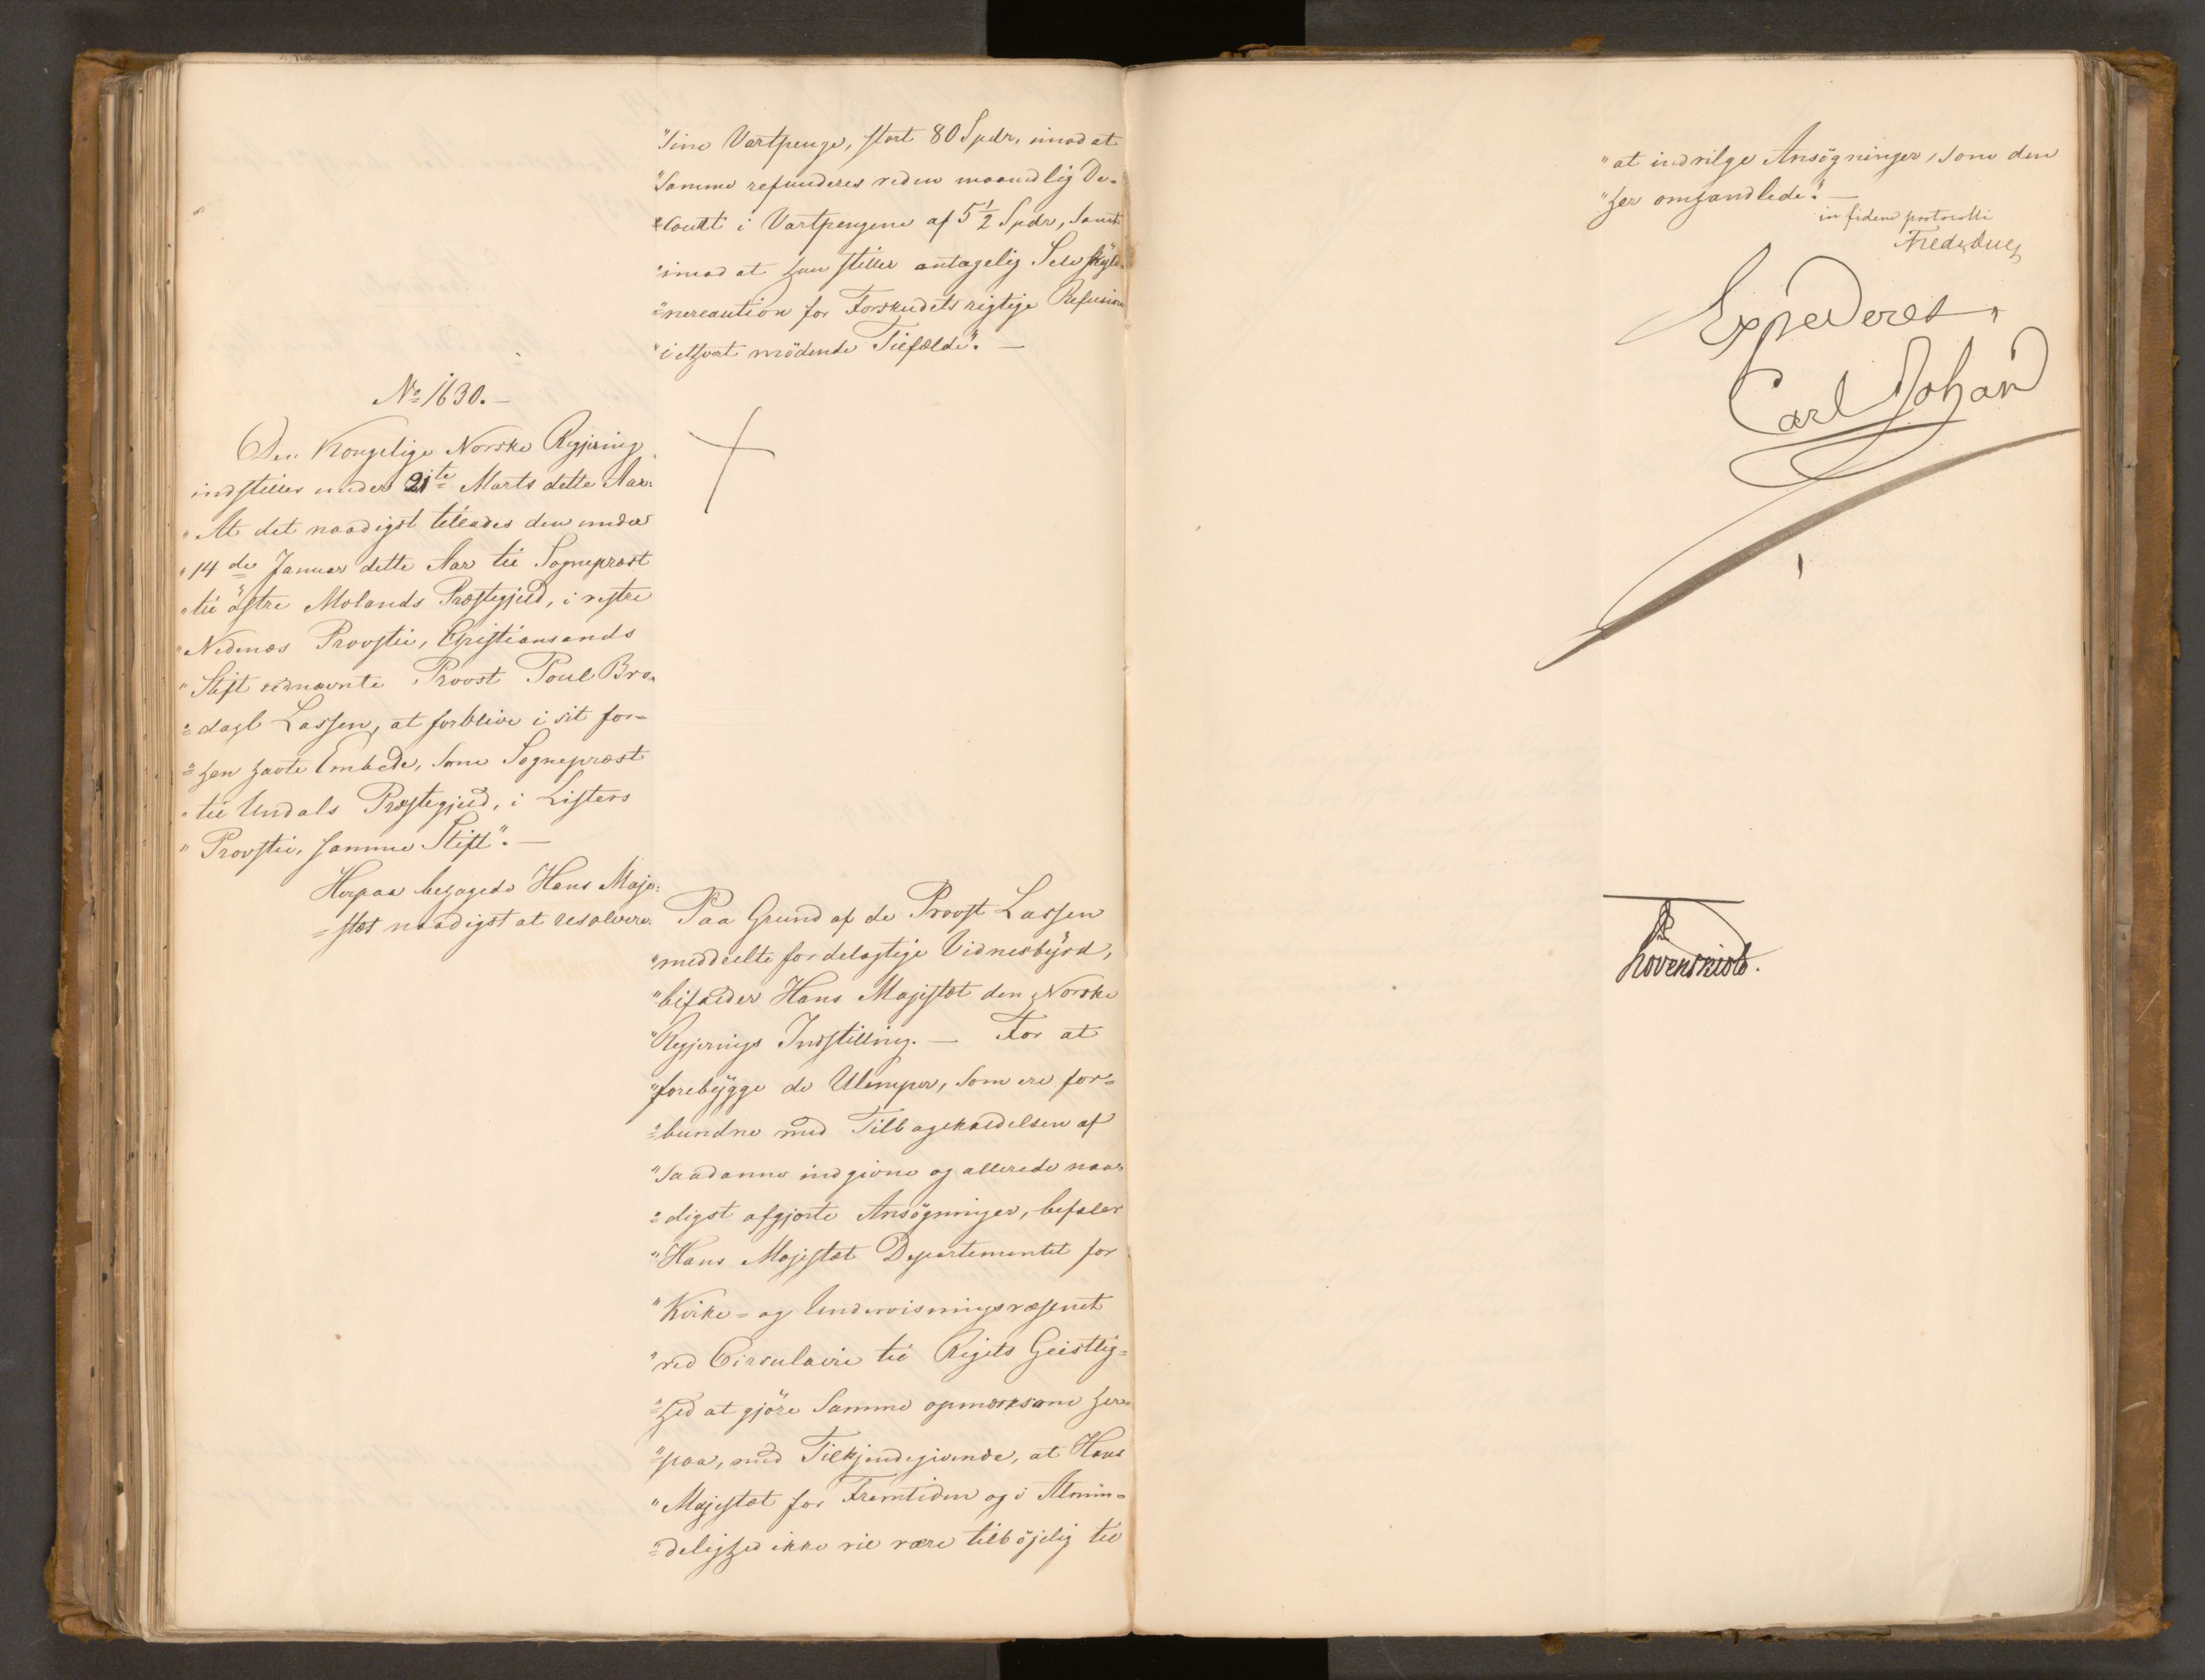 "sine Vartpenge, stort 80 Spdr, imod at
"samme refunderes ved en maanedlig De-
"coutt i Vartpengene af 5 1/2 Spdr, samt
"imod at han stiller antagelig Selvskyld-
"nercaution for Forskudets rigtige Refusion
"i ethvert mödende Tilfælde". —
No 1630. —
Den Kongelige Norske Regjering
indstiller under 21te Marts dette Aar:
"At det naadigst tillades den under
"14de Januar dette Aar til Sognepræst
"til östre Molands Præstegjeld, i vestre
"Nedenæs Provstie, Christiansands
"Stift udnævnte Provst Poul Bro-
"dahl Lassen, at forblive i sit for-
"hen havte Embede, som Sognepræst
"til Undals Præstegjeld, i Listers
"Provstie, samme Stift". —
Herpaa behagede Hans Maje-
stæt naadigst at resolvere:
Paa Grund af de Provst Lassen
"meddeelte fordelagtige Vidnesbyrd,
"bifalder Hans Majestæt den Norske
"Regjerings Indstilling. — For at
"forebygge de Ulemper, som ere for-
"bundne med Tilbagekaldelsen af
"saadanne indgivne og allerede naa-
"digst afgjorte Ansögninger, befaler
"Hans Majestæt Departementet for
"Kirke- og Underviisningsvæsenet
"ved Circulaire til Rigets Geistlig-
"hed at gjöre samme opmærksom her-
"paa, med Tilkjendegivende, at Hans
"Majestæt for Fremtiden og i Almin-
"delighed ikke vil være tilböjelig til
"at indvilge Ansögninger, som den
"her omhandlede". —
in fidem protocolli
Fredr Due
Expederes,
Carl Johan
Løvenskiold.